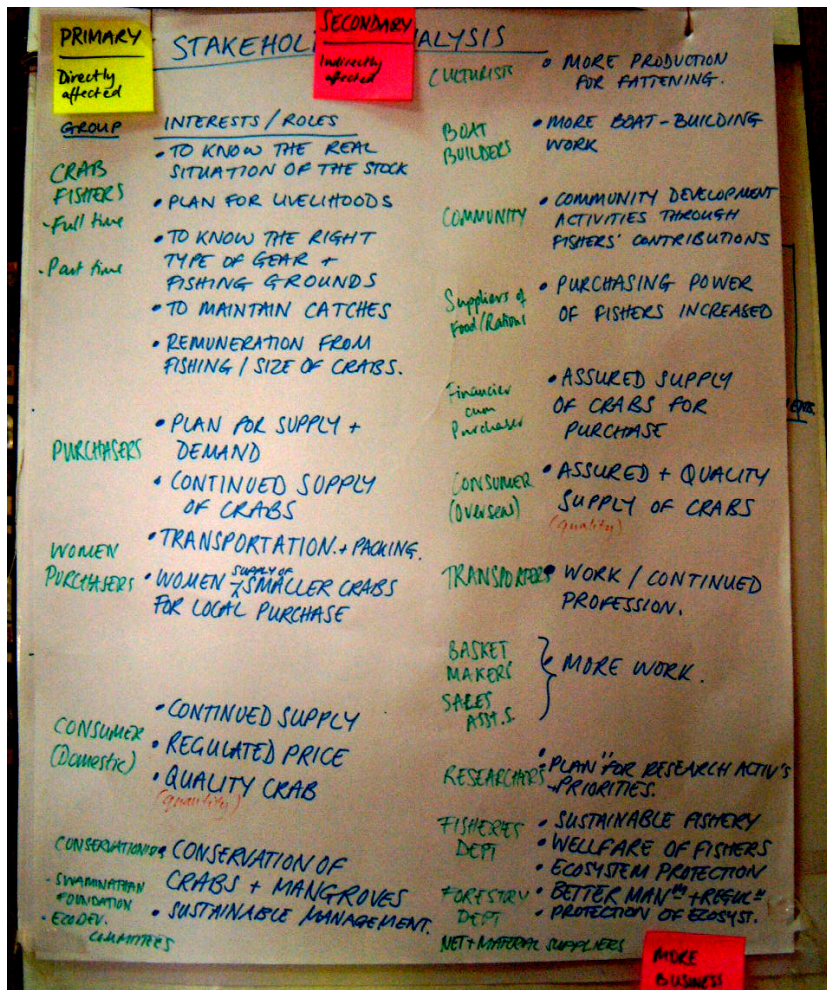 PRIMARY
Directly
affected
SECONDARY
Indirectly
affected
STAKEHOL ALYSIS
GROUP
INTERESTS / ROLES
CRAB
FISHERS
- Full time
- Part time
• TO KNOW THE REAL
SITUATION OF THE STOCK
• PLAN FOR LIVELIHOODS
• TO KNOW THE RIGHT
TYPE OF GEAR +
FISHING GROUNDS
• TO MAINTAIN CATCHES
• REMUNERATION FROM
FISHING / SIZE OF CRABS.
PURCHASERS
• PLAN FOR SUPPLY +
DEMAND
• CONTINUED SUPPLY
OF CRABS
WOMEN
PURCHASERS
• TRANSPORTATION + PACKING.
• WOMEN - SUPPLY OF SMALLER CRABS
FOR LOCAL PURCHASE
CONSUMER
(Domestic)
• CONTINUED SUPPLY
• REGULATED PRICE
• QUALITY CRAB
(quantity)
• CONSERVATION OF
CRABS + MANGROVES
• SUSTAINABLE MANAGEMENT.
- SWAMINATHAN
FOUNDATION
- ECODEV.
COMMITTEES
CULTURISTS
• MORE PRODUCTION
FOR FATTENING.
BOAT
BUILDERS
• MORE BOAT-BUILDING
WORK
COMMUNITY
• COMMUNITY DEVELOPMENT
ACTIVITIES THROUGH
FISHERS' CONTRIBUTIONS
Suppliers of
Food/Rations
• PURCHASING POWER
OF FISHERS INCREASED
Financier
cum
Purchaser
• ASSURED SUPPLY
OF CRABS FOR
PURCHASE
CONSUMER
(Overseas)
• ASSURED + QUALITY
SUPPLY OF CRABS
(quality)
TRANSPORTERS
• WORK / CONTINUED
PROFESSION.
BASKET
MAKERS
SALES
ASST.S.
MORE WORK.
RESEARCHERS
• "PLAN" FOR RESEARCH ACTIV'S
- PRIORITIES.
FISHERIES
DEPT
• SUSTAINABLE FISHERY
• WELLFARE OF FISHERS
• ECOSYSTEM PROTECTION
FORESTRY
DEPT
• BETTER MAN + REGUL
• PROTECTION OF ECOSYST.
NET + MATERIAL SUPPLIERS
MORE
BUSINESS